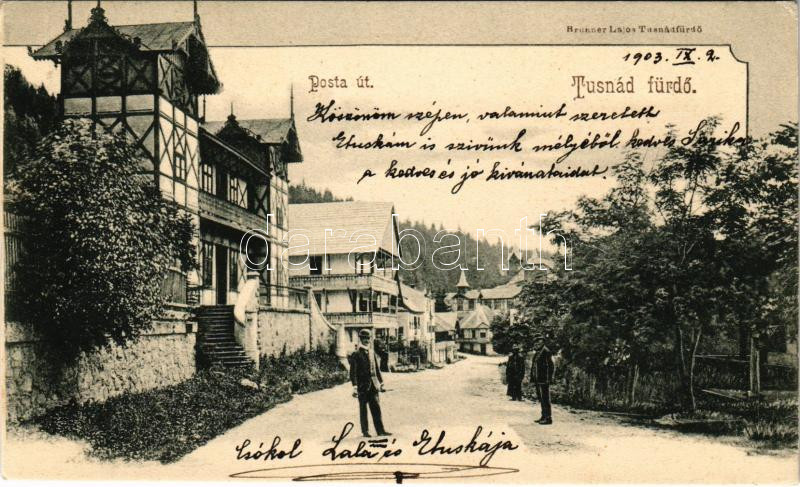 Brunner Lajos Tusnádfürdő
1903. IX. 2.
Posta út.
Tusnád fürdő.
Köszönöm szépen, valamint szeretett
Etuskám is szivünk mélyéből kedves Sarikám
a kedves és jó kivánataidat.
darabanth.com
Csókol Lala és Etuskája